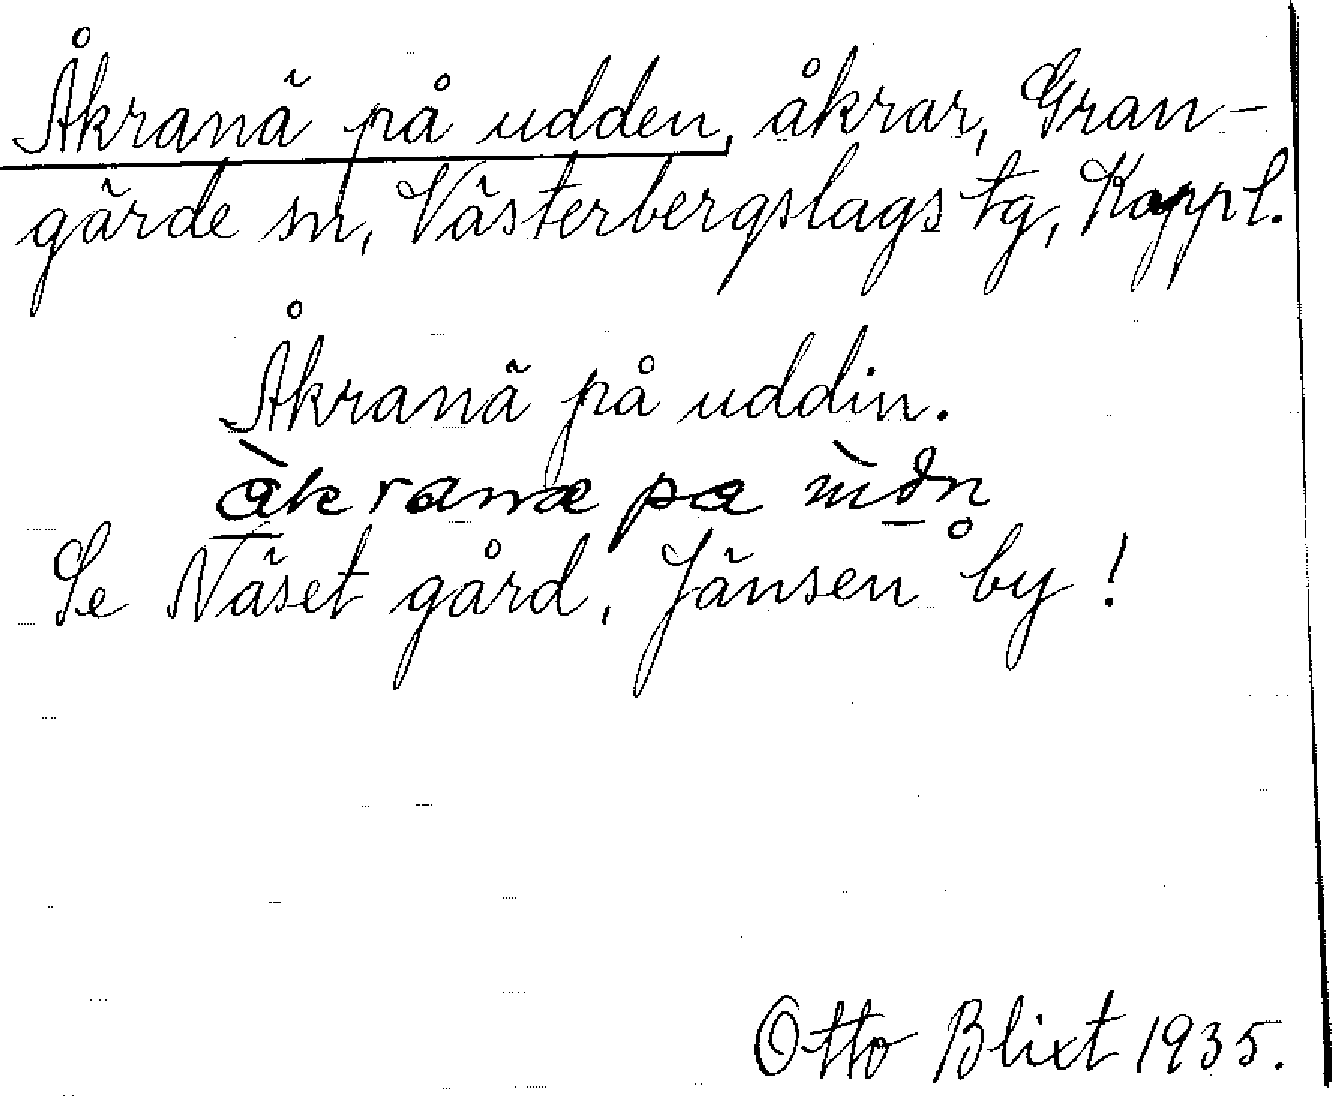 Åkranä på udden, åkrar, Gran-
gärde sn, Västerbergslags tg, Koppl.
Åkranä på uddin.
åkranæ pa
Se Näset gård, Jänsen by!
Otto Blixt 1935.